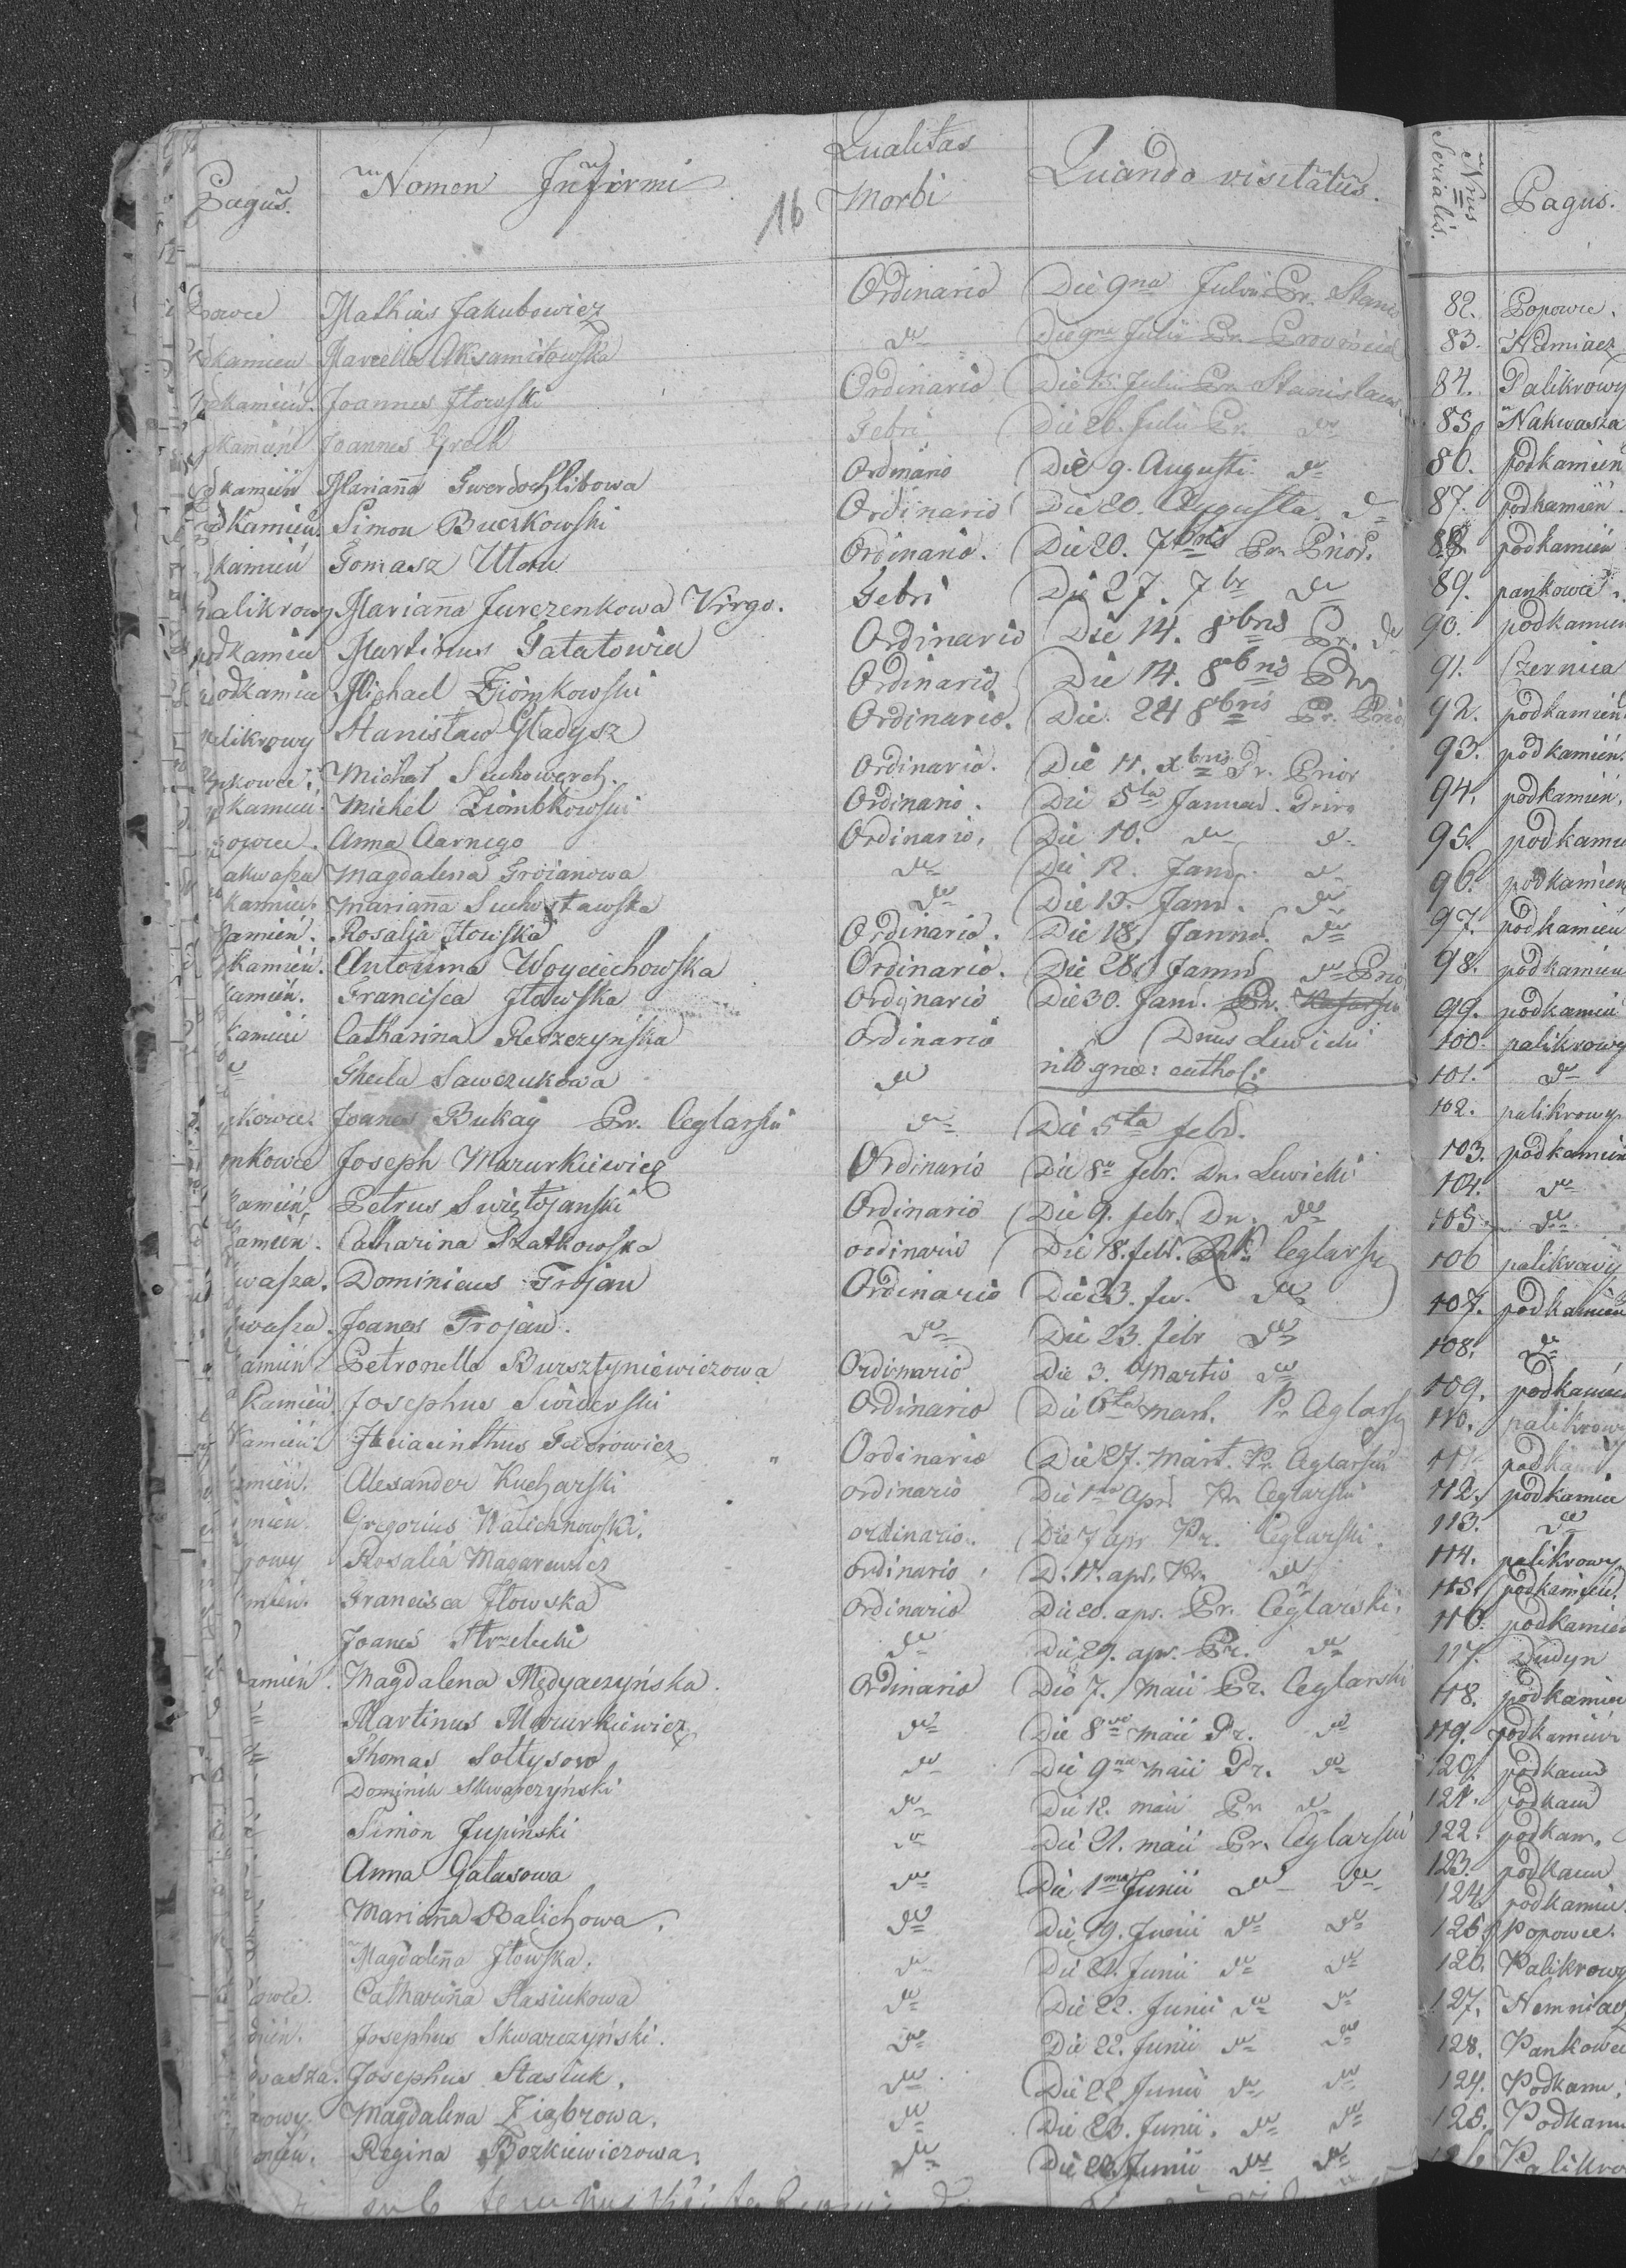 Pagus. Nomen Infirmi 16 Qualitas Morbi Quando visitatus.
Mathias Jakubowicz Ordinario Die 9na Julii Pr. Stanis
dkamien Marcella Aksamitowska do Die 9na Julii Pr. Provincial
dkamień. Joannes Iłowski Ordinario Die Julii Pr. Stanislaus
kamień Joannes Grech Febri Die 26. Julii Pr. do
dkamień Marianna Twerdochlibowa Ordinario Die 9. Augusti. do
odkamień. Simon Buczkowski Ordinario Die 20. Augusta do
kamień Tomasz Ordinario. Die 20. 7bris Pr. Prior.
Palikrowy Marianna Jurczenkowa Virgo. Febri Die 27. 7br do
podkamień Martinus Ordinario Die 14. 8bris Pr. do
odkamień Michael Ziomkowski Ordinario Die 14. 8bris
likrowy Stanisław Gładysz Ordinario. Die 24 8bris Pr. Prio
nkowce. Michał Suchowerch. Ordinario. Die 11. xbris Pr. Prior
kamień Michel Ziombkowski Ordinario. Die 5ta Januar.
powce. Anna Ordinario, Die 10. do do
akwasza Magdalena Troianowa do Die 12. Janr. do
kamień. Marianna Suchosławska do Die 13. Janr. do
kamień. Rosalja Iłowska Ordinario. Die 18. Januar. do
kamień. Antonina Woyciechowska Ordinario. Die 28. Januar do Prio
kamień. Francisca Iłowska Ordynario Die 30. Janr. Pr.
kamień Catharina Reszczyńska Ordinario Dnus Lewicki
do Thecla Sawczukowa do rito graec: cathol:
kowce. Joanes Bukay Pr. Ceglarski do Die 5ta febr.
nkowce Joseph Mazurkiewicz Ordinario Die 8a febr. Dn. Lewicki
kamień. Petrus Swiętojanski Ordinario Die 9. febr. Dn. do
kamień. Catharina Szatkowska ordinario Die 18. febr. Ceglarski
wasza. Dominicus Trojan Ordinario Die 23. fe. do
kwasza. Joanes Trojan. do Die 23. febr do
kamień Petronella Bursztyniewiczowa Ordinario Die 3. Martio do
kamień. Josephus Swiderski Ordinario Die 6ta mart. Pr Ceglarsk
kamień. Hiacinthus Fedorowicz Ordinario Die 27. Mart. Pr. Ceglarski
amień. Alexander Kucharski ordinario Die 1ma Apr. Pr Ceglarski
mień. Gregorius Walichnowski. ordinario. Die 7 apr Pr. Ceglarski.
rowy Rosalia Magarewicz ordinario, D. 11. apr. Pr. do
mień. Francisca Iłowska Ordinario Die 20. apr. Pr. Ceglarski.
Joanes Strzelecki do Die 29. apr. Pr. do
amień. Magdalena Mędyaczyńska. Ordinario Die 7. Maii Pr. Ceglarski
Martinus Mazurkiewicz do Die 8va maii Pr. do
Thomas Sołtysow do Die 9na maii Pr. do
Dominik Skwarczyński do Die 12. maii Pr do
Simon Jupiński do Die 21. maii Pr. Ceglarski
Anna Galasowa do Die 1ma Junii do do
Marianna Balichowa. do Die 19. Junii do do
Magdalena Iłowska. do Die 21. Junii do do
owce. Catharina Stasiukowa do Die 22. Junii do do
mień. Josephus Skwarczyński. do Die 22. Junii do do
wasza. Josephus Stasiuk. do Die 22. Junii do do
rowy. Magdalena Ziąbrowa. do Die 23. Junii. do do
mień. Regina Bozkiewiczowa. do Die 22. Junii do do
Nrus Serialis. Pagus.
82. Popowce.
83. Nemiacz
84. Palikrowy
85. Nakwasza
86. podkamień
87. podkamień.
88. podkamień
89. pankowce.
90. podkamien
91. Czernica
92. podkamień
93. podkamień.
94. podkamień.
95. podkamie
96. podkamień
97. podkamień
98. podkamień
99. podkamień
100. palikrowy
101. do
102. palikrowy
103. podkamień
104. do
105. do
106 palikrowy
107. podkamień
108. do
109. podkamień
110. palikrow
111. podkam
112. podkamie
113. do
114. palikrowy
115. podkamień.
116. podkamień
117. Dudyn
118. podkamień
119. podkamień
120. podkam
121. podkam
122. podkam.
123. podkam
124. podkamie
125. Popowce.
126. Palikrowy
127. Nemiacz
128. Pankowce
124. Podkami.
125. Podkami
Palikro